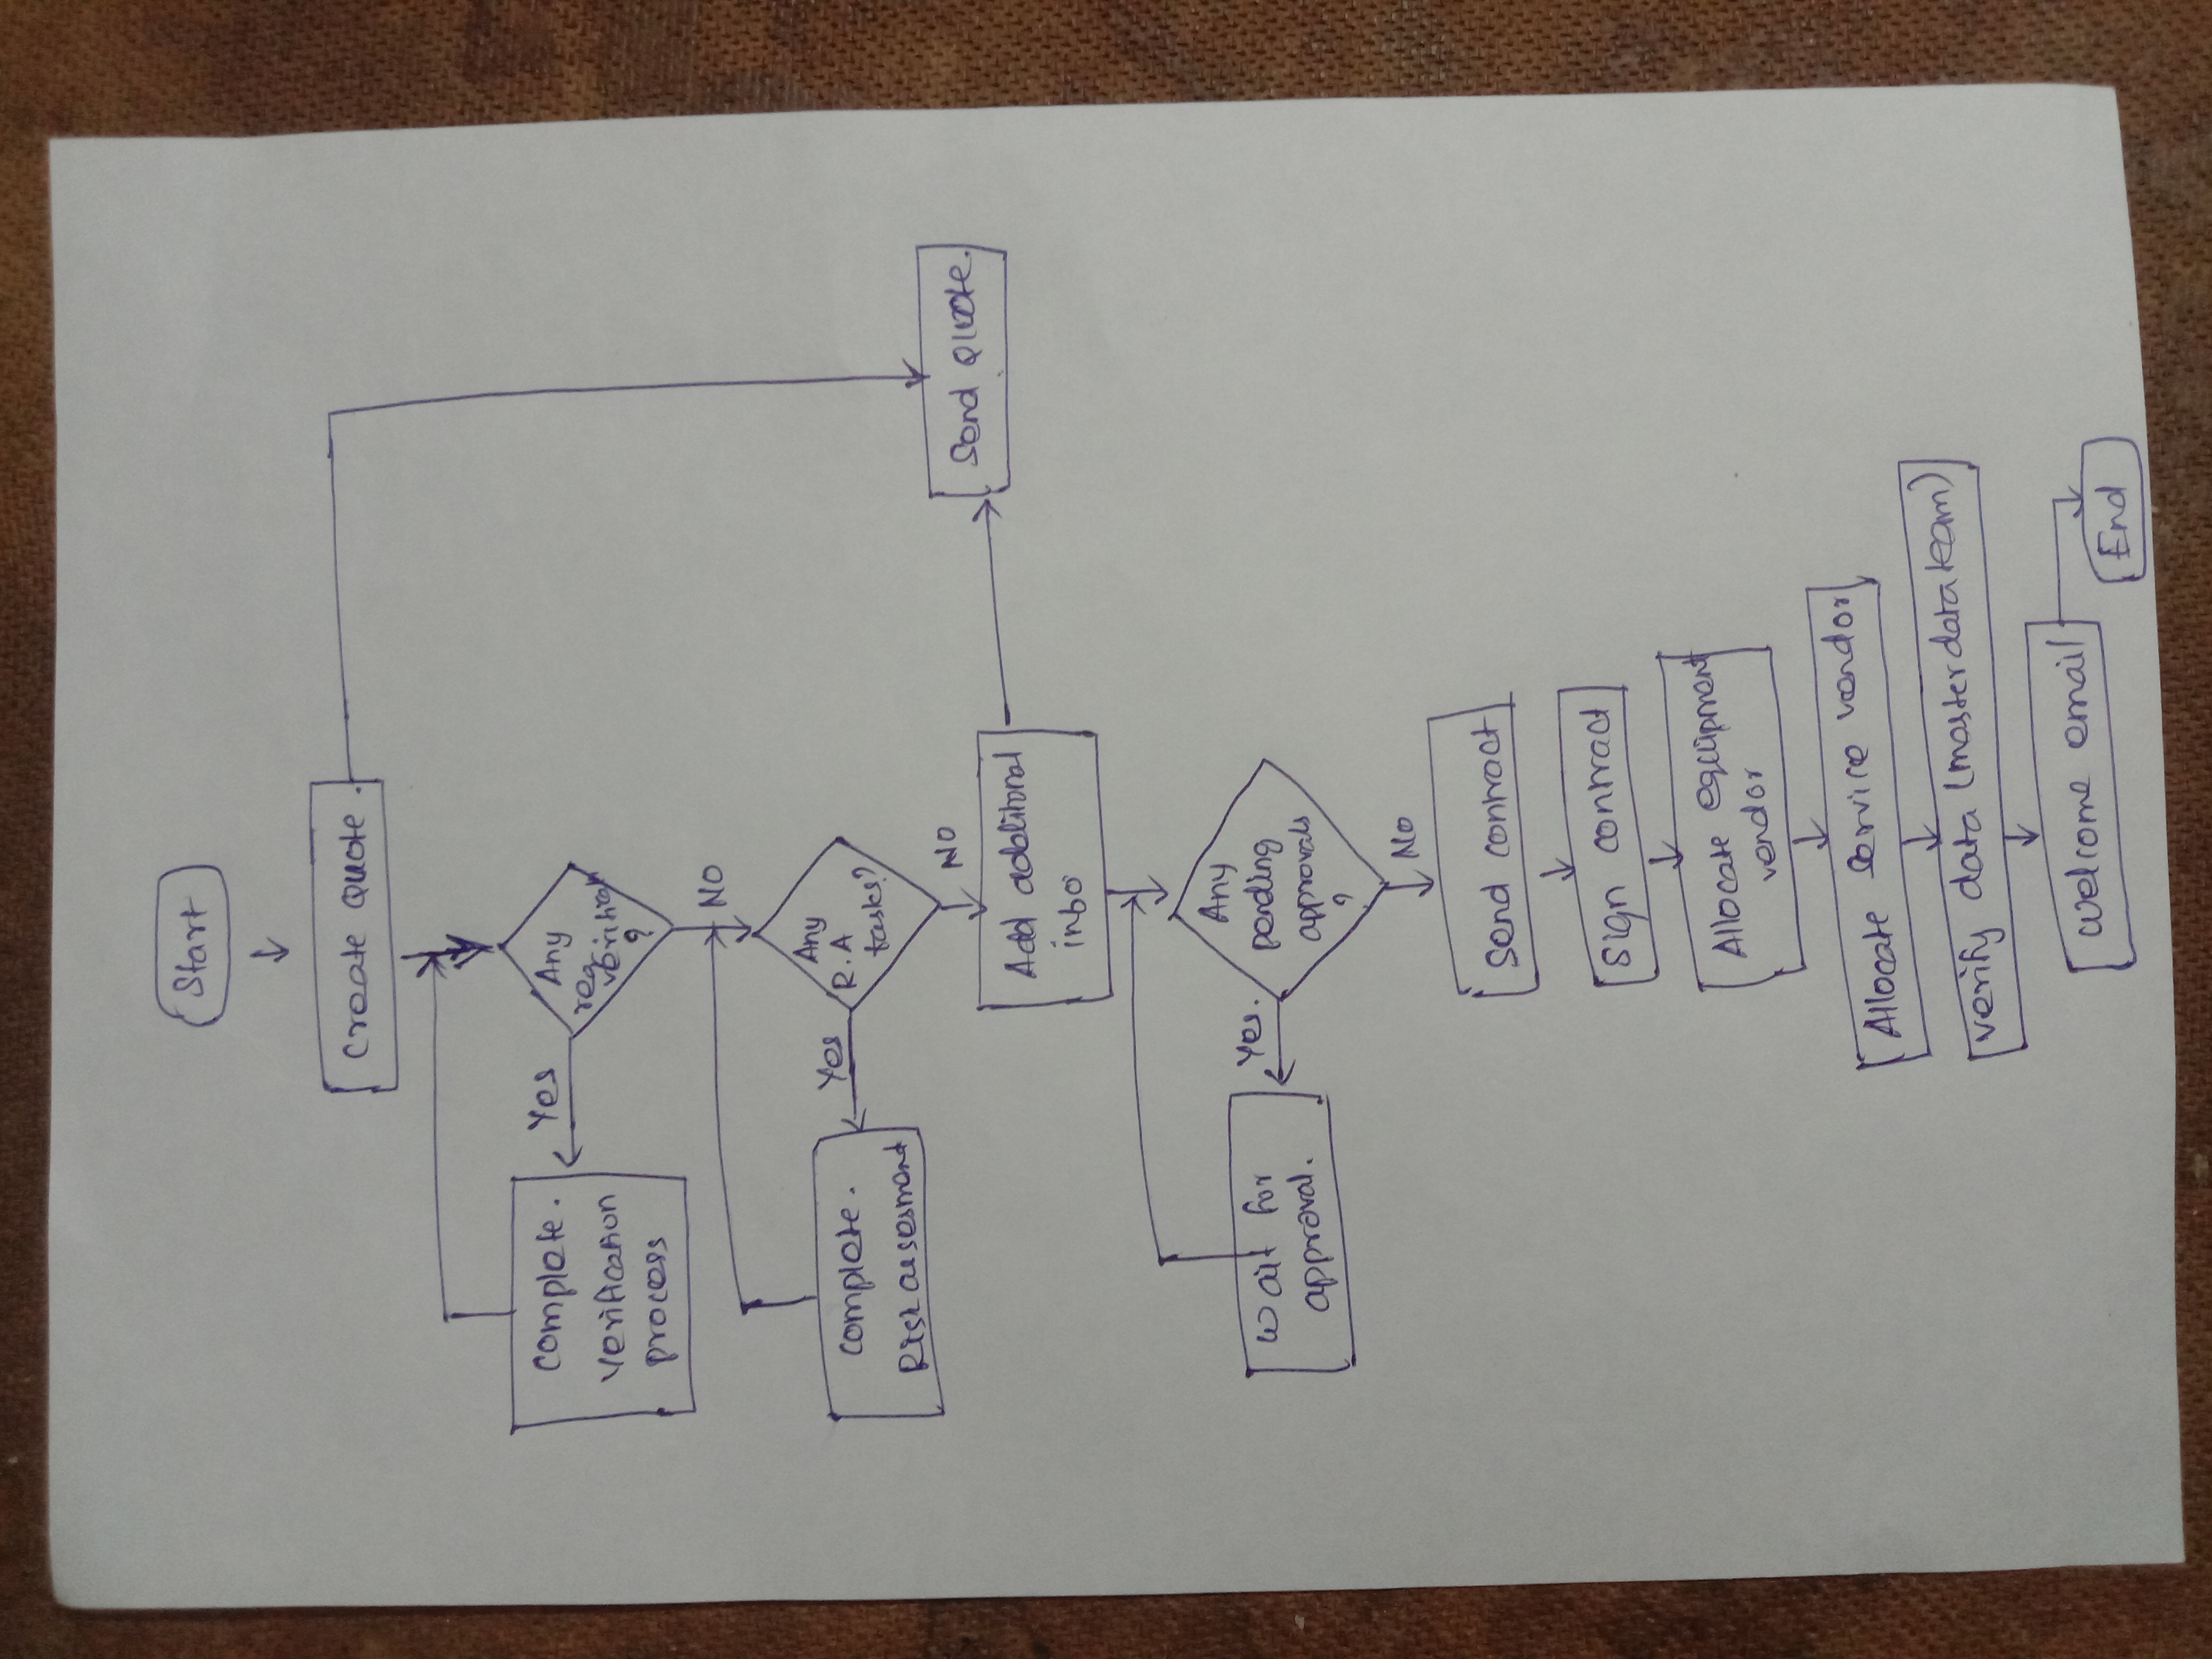 Start
Create Quote.
Any
reg
?
Yes
NO
Complete.
Verification
process
Any
R.A
tasks?
Yes
NO
Complete.
Risk
Add additional
info
Send Quote.
Any
pending
approvals
?
Yes.
No
Wait for
approval.
Send contract
Sign contract
Allocate equipment
vendor
Allocate service vendor
verify data (master data team)
welcome email
End